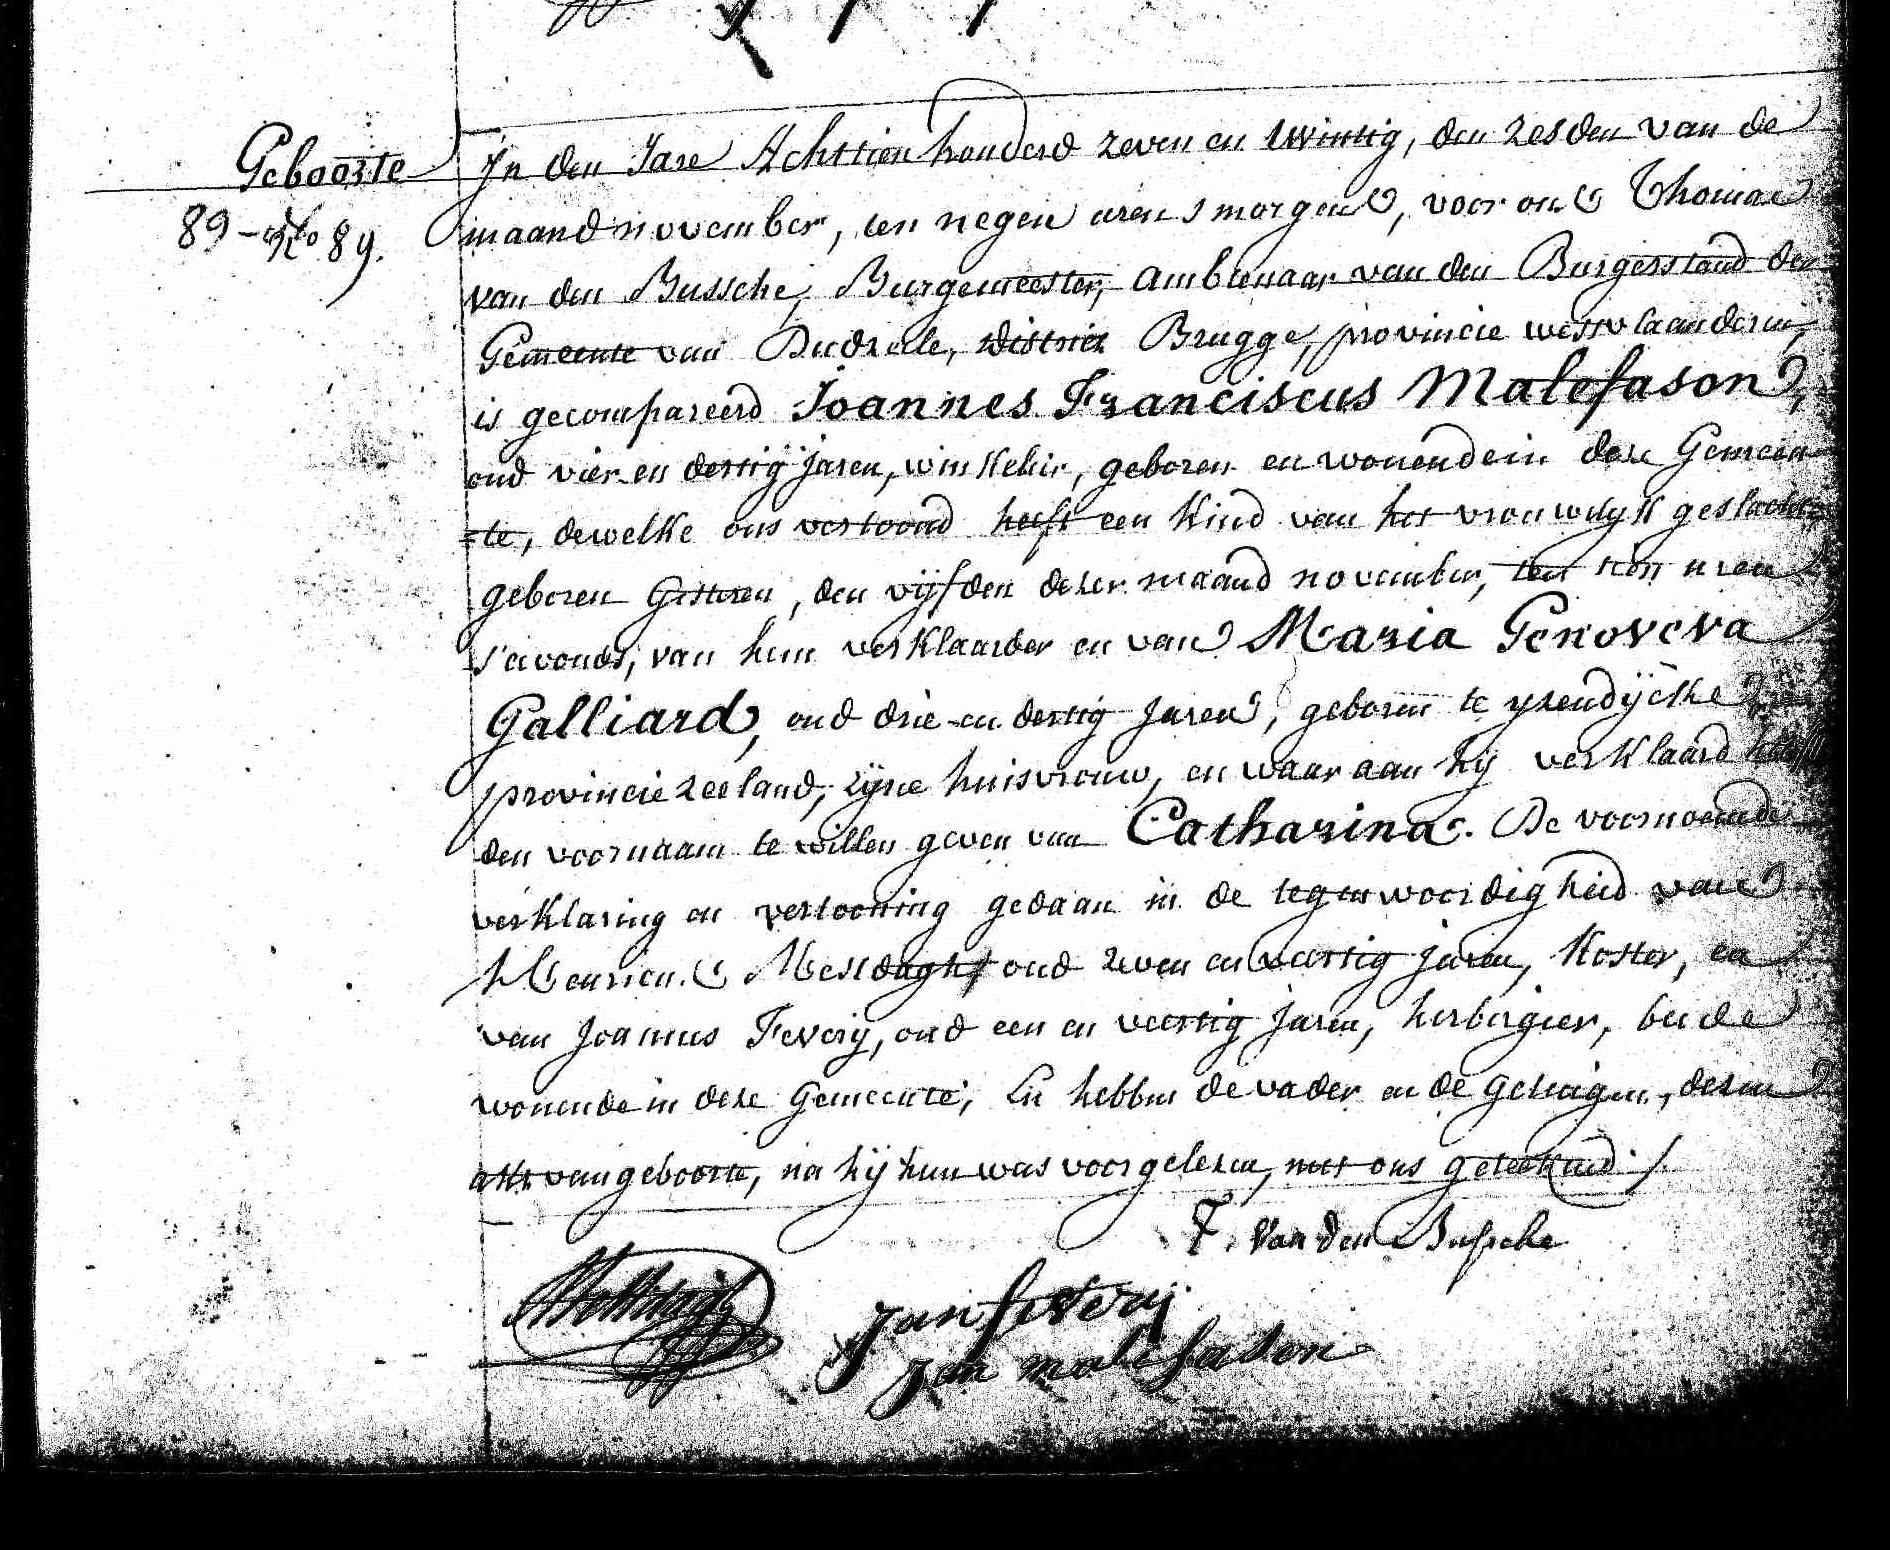 Geboorte
89 - No 89.
In den Jare Achttien honderd zeven en twintig, den zesden van de
maand november, ten negen uren s morgens, voor ons Thomas
van den Bussche, Burgemeester, Ambtenaar van den Burgerstand der
Gemeente van Dudzeele, District Brugge, provincie westvlaanderen,
is gecompareerd Joannes Franciscus Malefason,
oud vier en dertig jaren, winkelier, geboren en wonende in deze Gemeen-
=te, dewelke ons vertoond heeft een kind van het vrouwlyk geslacht,
geboren Gisteren, den vijfden dezer maand november, ten uren
s'avonds, van hem verklaarder en van Maria Genoveva
Galliard, oud drie en dertig Jaren, geboren te yzendijcke
provincie zeeland, zijne huisvrouw, en waar aan hij verklaard heeft
den voornaam te willen geven van Catharina. De voornoemde
verklaring en vertooning gedaan in de tegenwoordigheid van
Mestdagh, oud zeven en veertig jaren, Koster, en
van Joannes Fevery, oud een en veertig Jaren, herbergier, beide
wonende in deze Gemeente; En hebben de vader en de getuigen, dezen
akt van geboorte, na hij hun was voorgelezen, met ons geteekend ./.
T. Van den Bussche
Mestdagh
Jan feverij
Jan malefason